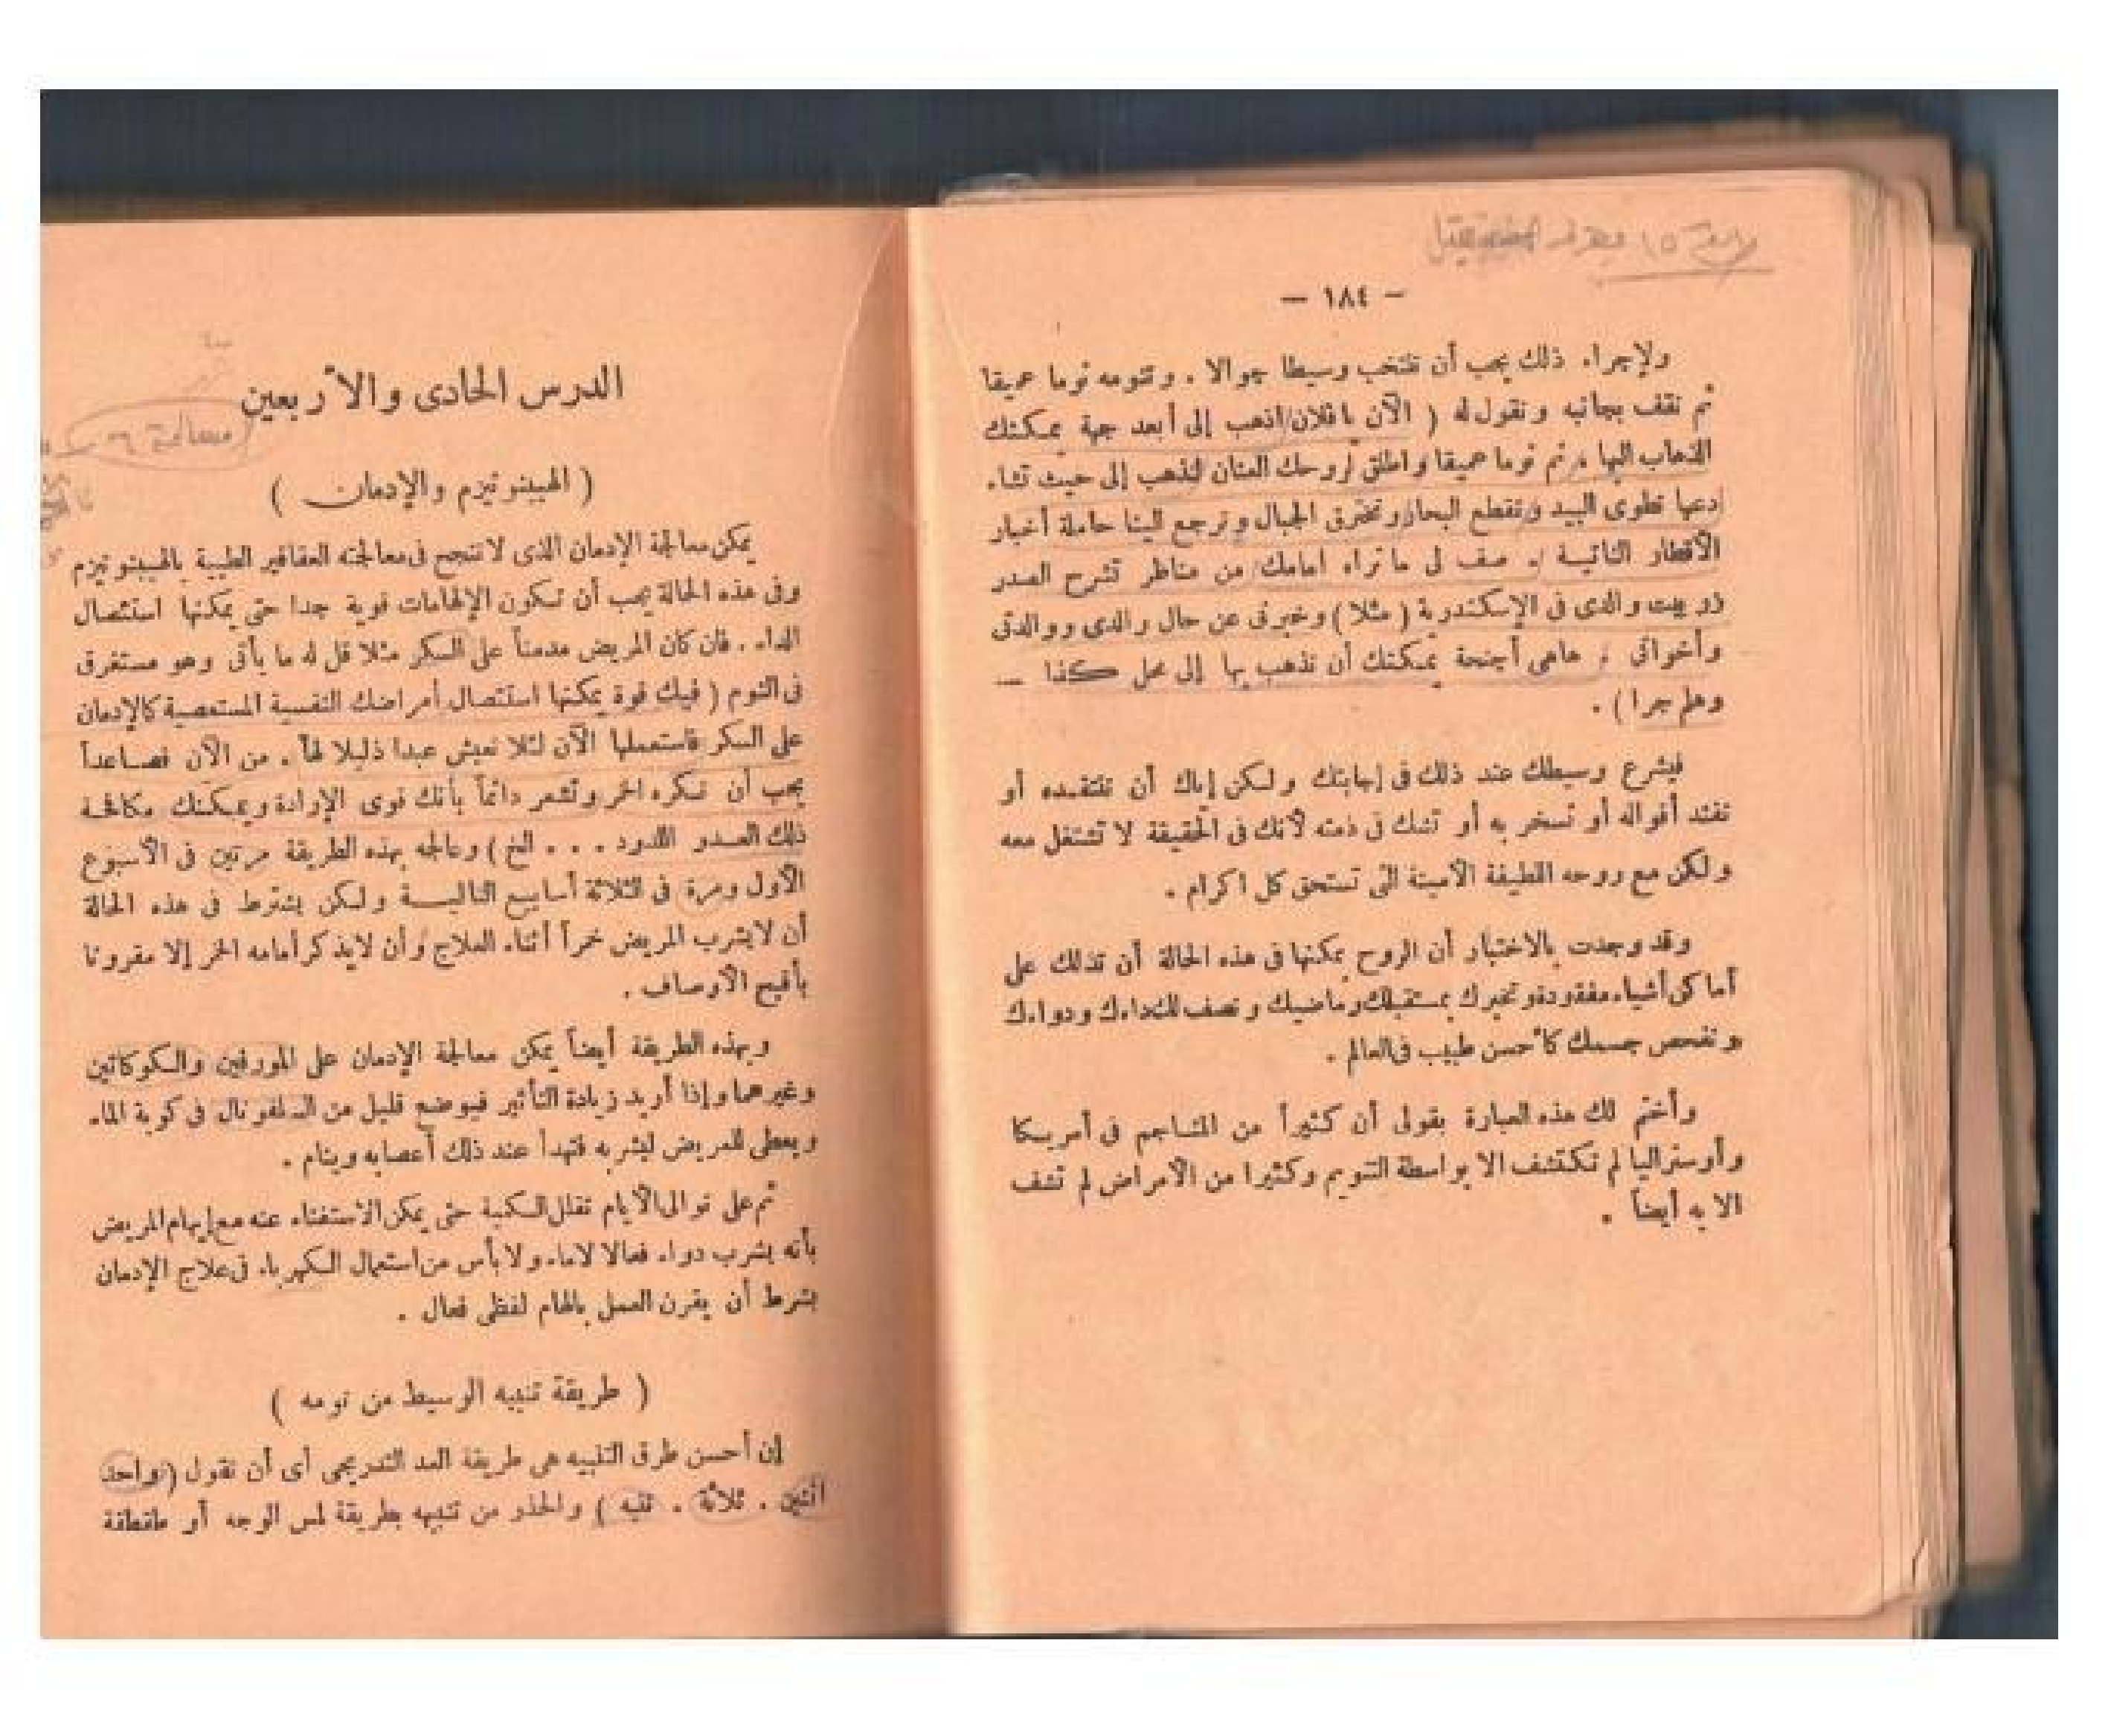 — ١٨٤ —
ولإجراء ذلك يجب أن تنتخب وسيطا جوالا . وتنومه نوما عميقا
ثم تقف بجانبه وتقول له ( الآن يا فلان اذهب إلى أبعد جهة يمكنك
الذهاب اليها . نم نوما عميقا واطلق لروحك العنان لتذهب إلى حيث تشاء
دعها تطوى البيد وتقطع البحار وتخترق الجبال وترجع الينا حاملة أخبار
الأقطار النائية . صف لى ما تراه أمامك من مناظر تشرح الصدر
زر بيت والدى فى الإسكندرية ( مثلا ) وخبرنى عن حال والدى ووالدتى
وأخواتى . هاهى أجنحة يمكنك أن تذهب بها إلى محل كذا —
وهلم جرا ) .
فيشرع وسيطك عند ذلك فى إجابتك ولكن إياك أن تنتقده أو
تفند أقواله أو تسخر به أو تشك فى ذمته لأنك فى الحقيقة لا تشتغل معه
ولكن مع روحه اللطيفة الأمينة التى تستحق كل اكرام .
وقد وجدت بالاختبار أن الروح يمكنها فى هذه الحالة أن تدلك على
أماكن أشياء مفقودة وتخبرك بمستقبلك وماضيك وتصف لك داءك ودواءك
وتفحص جسمك كأحسن طبيب فى العالم .
وأختم لك هذه العبارة بقولى أن كثيراً من المناجم فى أمريكا
وأوستراليا لم تكتشف الا بواسطة التنويم وكثيرا من الأمراض لم تشف
الا به أيضاً .
الدرس الحادى والأربعين
( الهيبنوتيزم والإدمان )
يمكن معالجة الإدمان الذى لا تنجح فى معالجته العقاقير الطبية بالهيبنوتيزم
وفى هذه الحالة يجب أن تكون الإلهامات قوية جدا حتى يمكنها استئصال
الداء . فان كان المريض مدمناً على السكر مثلا قل له ما يأتى وهو مستغرق
فى النوم ( فيك قوة يمكنها استئصال أمراضك النفسية المستعصية كالإدمان
على السكر فاستعملها الآن لئلا تعيش عبدا ذليلا لها . من الآن فصاعداً
يجب أن تكره الخمر وتشعر دائماً بأنك قوى الإرادة ويمكنك مكافحة
ذلك العدو اللدود . . . الخ ) وعالجه بهذه الطريقة مرتين فى الأسبوع
الأول ومرة فى الثلاثة أسابيع التالية ولكن يشترط فى هذه الحالة
أن لا يشرب المريض خمراً أثناء العلاج وأن لا يذكر أمامه الخمر إلا مقرونا
بأقبح الأوصاف .
وبهذه الطريقة أيضاً يمكن معالجة الإدمان على المورفين والكوكائين
وغيرهما وإذا أريد زيادة التأثير فيوضع قليل من السلفونال فى كوبة الماء
ويعطى للمريض ليشربه فتهدأ عند ذلك أعصابه وينام .
ثم على توالى الأيام تقلل الكمية حتى يمكن الاستغناء عنه مع إيهام المريض
بأنه يشرب دواء فعالا لا ماء ولا بأس من استعمال الكهرباء فى علاج الإدمان
بشرط أن يقرن العمل بالهام لفظى فعال .
( طريقة تنبيه الوسيط من نومه )
إن أحسن طرق التنبيه هى طريقة العد التدريجى أى أن تقول ( واحد
اثنين . ثلاثة . تنبه ) والحذر من تنبيهه بطريقة لمس الوجه أو طقطقة